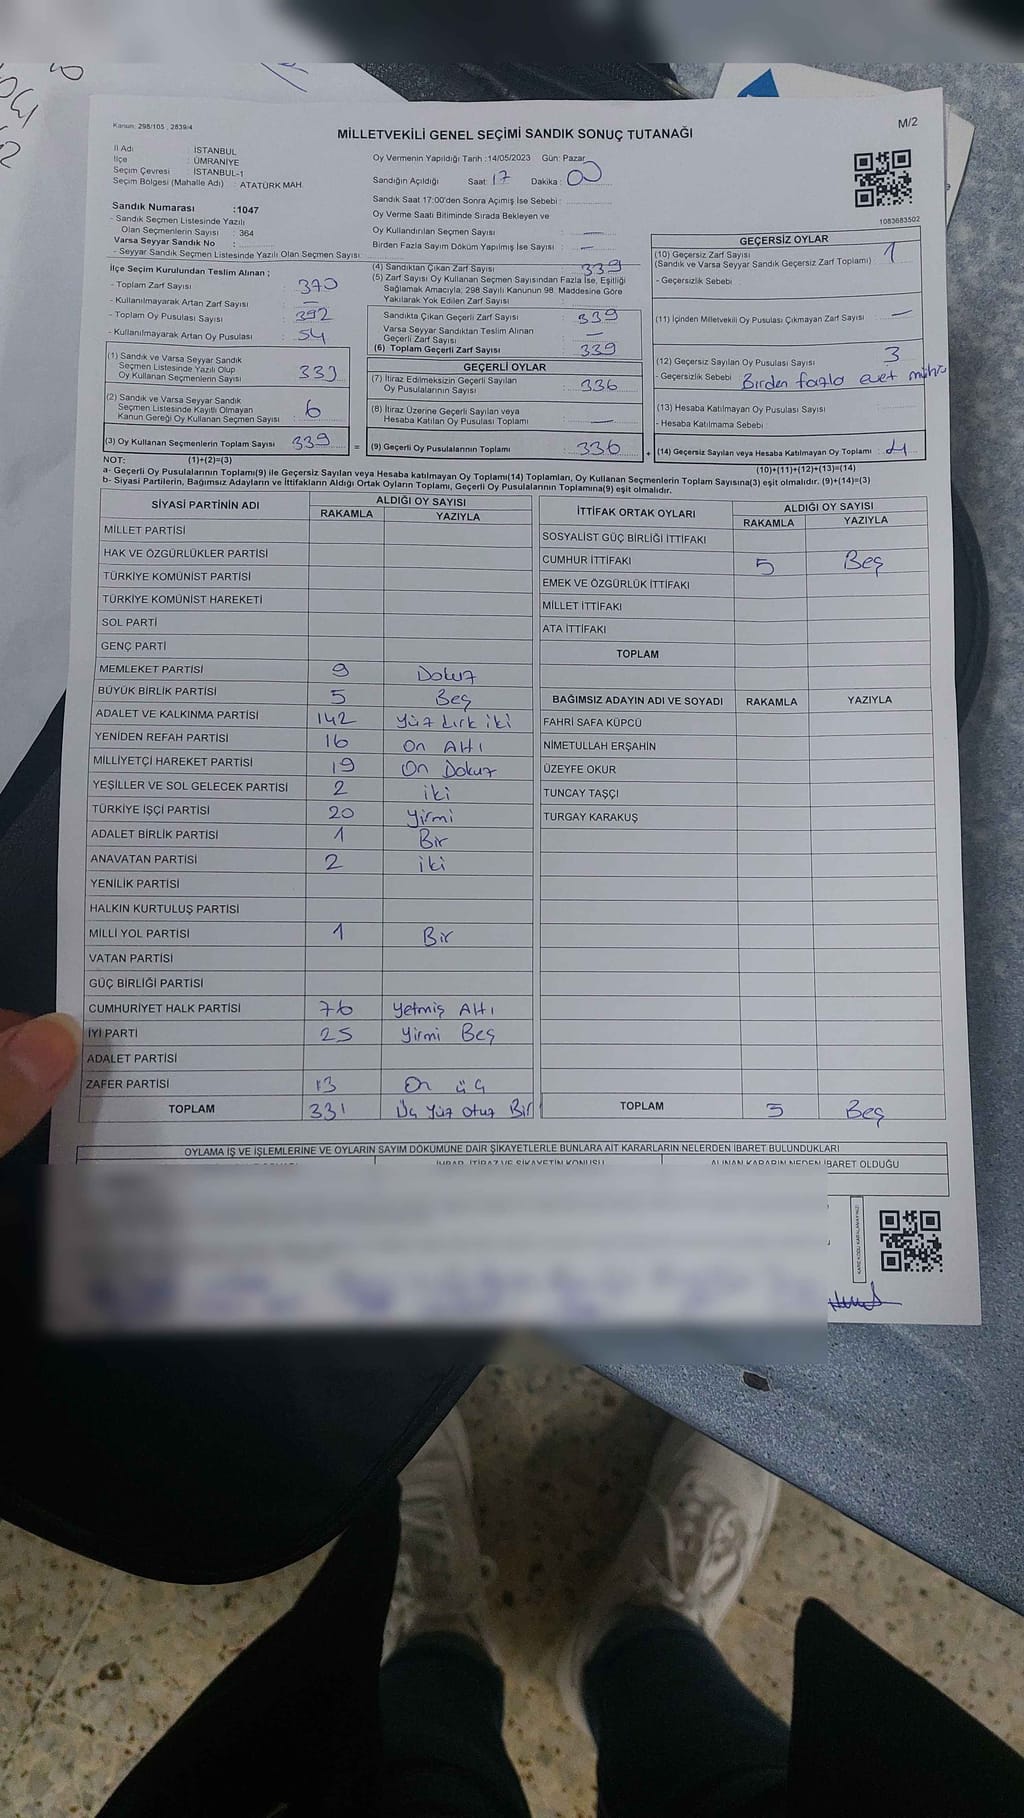 Kanun: 298/105 , 2839/4
M/2
MİLLETVEKİLİ GENEL SEÇİMİ SANDIK SONUÇ TUTANAĞI
İl Adı : İSTANBUL
İlçe : ÜMRANİYE
Seçim Çevresi : İSTANBUL-1
Seçim Bölgesi (Mahalle Adı) : ATATÜRK MAH.
Oy Vermenin Yapıldığı Tarih :14/05/2023 Gün: Pazar
Sandığın Açıldığı Saat: 17 Dakika : 00
Sandık Saat 17:00'den Sonra Açımış İse Sebebi :
Oy Verme Saati Bitiminde Sırada Bekleyen ve
Oy Kullandırılan Seçmen Sayısı : —
Birden Fazla Sayım Döküm Yapılmış İse Sayısı : —
1083683502
Sandık Numarası :1047
- Sandık Seçmen Listesinde Yazılı
Olan Seçmenlerin Sayısı : 364
Varsa Seyyar Sandık No :
- Seyyar Sandık Seçmen Listesinde Yazılı Olan Seçmen Sayısı:
İlçe Seçim Kurulundan Teslim Alınan ;
- Toplam Zarf Sayısı : 370
- Kullanılmayarak Artan Zarf Sayısı : —
- Toplam Oy Pusulası Sayısı : 392
- Kullanılmayarak Artan Oy Pusulası : 54
(1) Sandık ve Varsa Seyyar Sandık
Seçmen Listesinde Yazılı Olup
Oy Kullanan Seçmenlerin Sayısı : 333
(2) Sandık ve Varsa Seyyar Sandık
Seçmen Listesinde Kayıtlı Olmayan
Kanun Gereği Oy Kullanan Seçmen Sayısı : 6
(3) Oy Kullanan Seçmenlerin Toplam Sayısı : 339
(4) Sandıktan Çıkan Zarf Sayısı : 339
(5) Zarf Sayısı Oy Kullanan Seçmen Sayısından Fazla İse, Eşitliği
Sağlamak Amacıyla, 298 Sayılı Kanunun 98. Maddesine Göre
Yakılarak Yok Edilen Zarf Sayısı :
Sandıkta Çıkan Geçerli Zarf Sayısı : 339
Varsa Seyyar Sandıktan Teslim Alınan
Geçerli Zarf Sayısı : —
(6) Toplam Geçerli Zarf Sayısı : 339
GEÇERLİ OYLAR
(7) İtiraz Edilmeksizin Geçerli Sayılan
Oy Pusulalarının Sayısı : 336
(8) İtiraz Üzerine Geçerli Sayılan veya
Hesaba Katılan Oy Pusulası Toplamı : —
= (9) Geçerli Oy Pusulalarının Toplamı : 336 +
GEÇERSİZ OYLAR
(10) Geçersiz Zarf Sayısı : 1
(Sandık ve Varsa Seyyar Sandık Geçersiz Zarf Toplamı)
- Geçersizlik Sebebi :
(11) İçinden Milletvekili Oy Pusulası Çıkmayan Zarf Sayısı : —
(12) Geçersiz Sayılan Oy Pusulası Sayısı : 3
- Geçersizlik Sebebi : Birden fazla evet mührü
(13) Hesaba Katılmayan Oy Pusulası Sayısı :
- Hesaba Katılmama Sebebi :
(14) Geçersiz Sayılan veya Hesaba Katılmayan Oy Toplamı : 4
NOT: (1)+(2)=(3)
(10)+(11)+(12)+(13)=(14)
a- Geçerli Oy Pusulalarının Toplamı(9) ile Geçersiz Sayılan veya Hesaba katılmayan Oy Toplamı(14) Toplamları, Oy Kullanan Seçmenlerin Toplam Sayısına(3) eşit olmalıdır. (9)+(14)=(3)
b- Siyasi Partilerin, Bağımsız Adayların ve İttifakların Aldığı Ortak Oyların Toplamı, Geçerli Oy Pusulalarının Toplamına(9) eşit olmalıdır.
SİYASİ PARTİNİN ADI ALDIĞI OY SAYISI
RAKAMLA YAZIYLA
MİLLET PARTİSİ
HAK VE ÖZGÜRLÜKLER PARTİSİ
TÜRKİYE KOMÜNİST PARTİSİ
TÜRKİYE KOMÜNİST HAREKETİ
SOL PARTİ
GENÇ PARTİ
MEMLEKET PARTİSİ 9 Dokuz
BÜYÜK BİRLİK PARTİSİ 5 Beş
ADALET VE KALKINMA PARTİSİ 142 Yüz kırk iki
YENİDEN REFAH PARTİSİ 16 On Altı
MİLLİYETÇİ HAREKET PARTİSİ 19 On Dokuz
YEŞİLLER VE SOL GELECEK PARTİSİ 2 iki
TÜRKİYE İŞÇİ PARTİSİ 20 Yirmi
ADALET BİRLİK PARTİSİ 1 Bir
ANAVATAN PARTİSİ 2 iki
YENİLİK PARTİSİ
HALKIN KURTULUŞ PARTİSİ
MİLLİ YOL PARTİSİ 1 Bir
VATAN PARTİSİ
GÜÇ BİRLİĞİ PARTİSİ
CUMHURİYET HALK PARTİSİ 76 Yetmiş Altı
İYİ PARTİ 25 Yirmi Beş
ADALET PARTİSİ
ZAFER PARTİSİ 13 On üç
TOPLAM 331 Üç Yüz otuz Bir
İTTİFAK ORTAK OYLARI ALDIĞI OY SAYISI
RAKAMLA YAZIYLA
SOSYALİST GÜÇ BİRLİĞİ İTTİFAKI
CUMHUR İTTİFAKI 5 Beş
EMEK VE ÖZGÜRLÜK İTTİFAKI
MİLLET İTTİFAKI
ATA İTTİFAKI
TOPLAM
BAĞIMSIZ ADAYIN ADI VE SOYADI RAKAMLA YAZIYLA
FAHRİ SAFA KÜPCÜ
NİMETULLAH ERŞAHİN
ÜZEYFE OKUR
TUNCAY TAŞÇI
TURGAY KARAKUŞ
TOPLAM 5 Beş
OYLAMA İŞ VE İŞLEMLERİNE VE OYLARIN SAYIM DÖKÜMÜNE DAİR ŞİKAYETLERLE BUNLARA AİT KARARLARIN NELERDEN İBARET BULUNDUKLARI
İHBAR, İTİRAZ VE ŞİKAYETİN KONUSU ALINAN KARARIN NEDEN İBARET OLDUĞU
KARE KODU KARALAMAYINIZ!